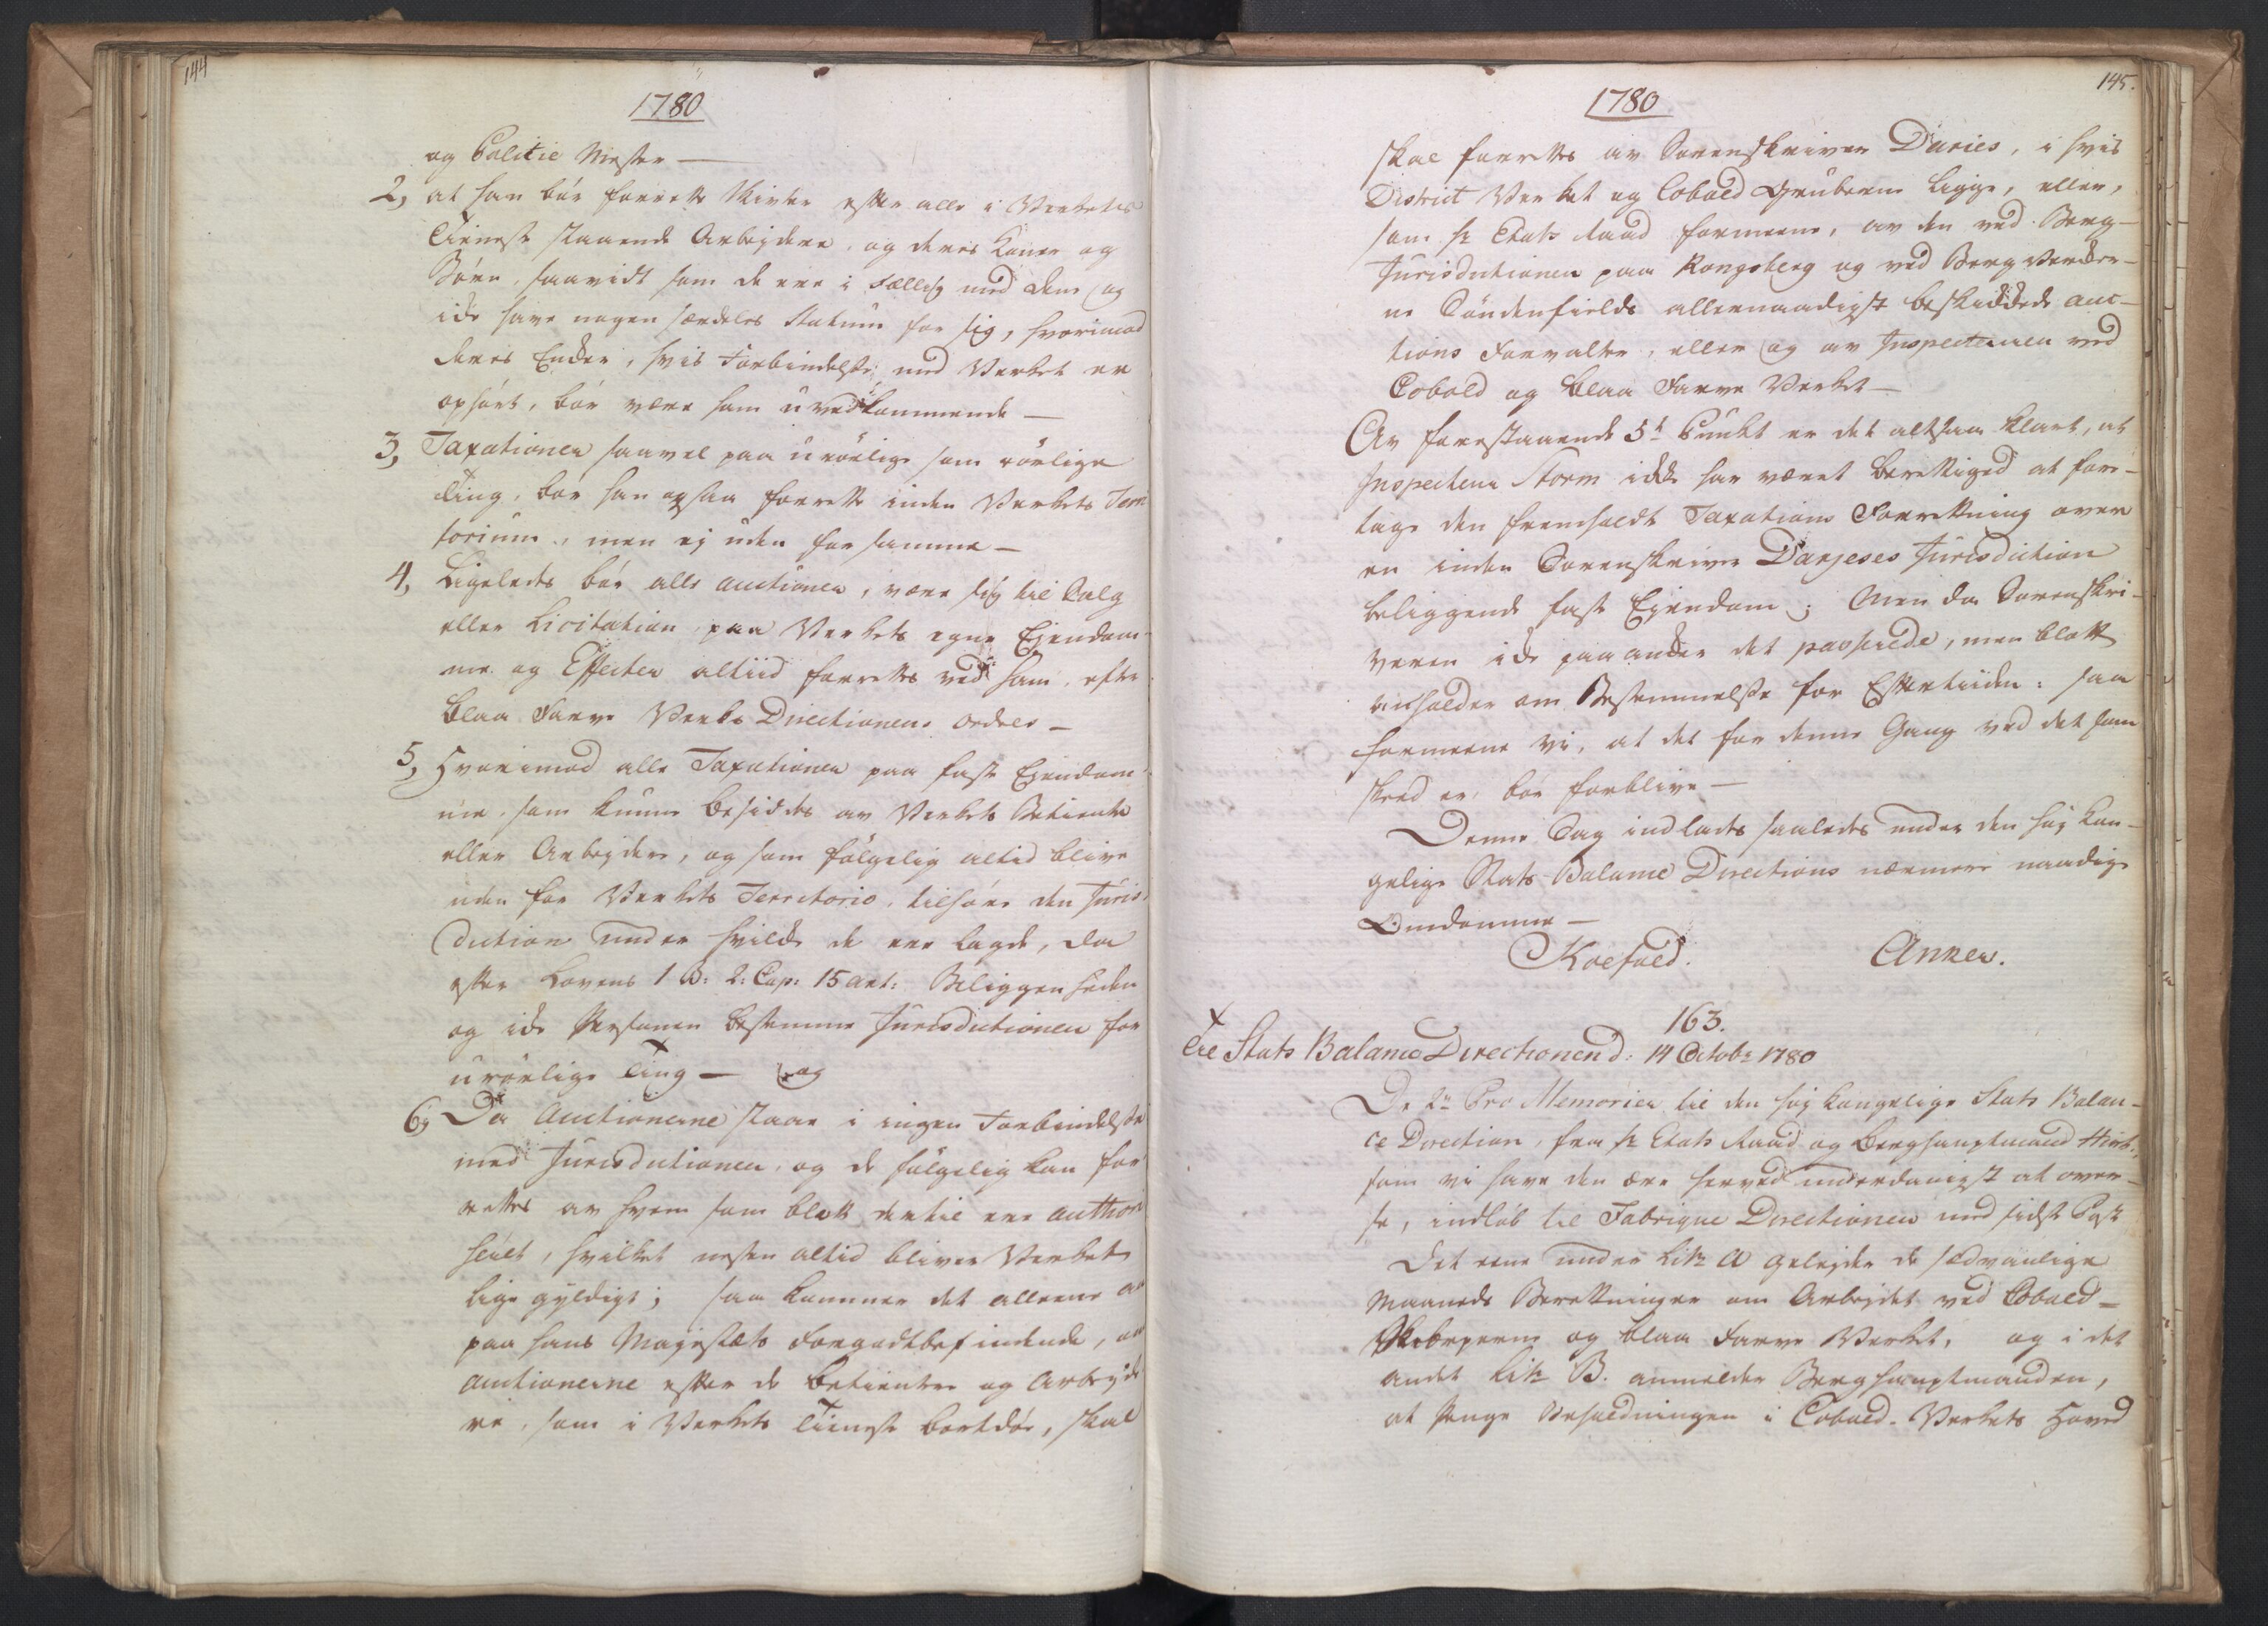 144
1780
og Politie Mester —
2, at han bör forrette Skifter efter alle i Verkets
Tieneste staaende Arbejdere, og deres Koner og
Börn, saavidt som de ere i Fællig med dem og
icke have nogen særdeles Statum for sig, hvorimod
deres Encker, hvis Forbindelse med Verket er
ophört, bör være ham uvedkommende —
3, Taxationer saavel paa urörlige som rörlige
Ting, bör han ogsaa forrette inden Verkets Terri
torium, men ej uden for samme —
4, Ligeledes bör alle Auctioner, være sig til Salg
eller Licitation paa Verkets egne Ejendom-
me og Effecter altiid forrettes ved ham, efter
Blaa Farve Verks Directionens ordres —
5, Hvorimod alle Taxationer paa faste Ejendom-
me, som kunne besiddes av Verkets Betiente
eller Arbejdere, og som fölgelig altid blive
uden for Verkets Territorio, tilhöre den Juris-
diction under hvilcke de ere lagde, da
efter Lovens 1 B: 2: Cap: 15 Art: Beliggenheden
og icke Personen bestemme Jurisdictionen for
urörlige Ting — og
6, Da Auctionerne staar i ingen Forbindelse
med Jurisdictionen, og de fölgelig kan for
rettes av hvem som blot dertil er authori
seret, hvilket nesten altid bliver Verket
lige gyldigt; saa kommer det alleene an
paa hans Majestæts Forgodtbefindende, om
Auctionerne efter de Betientere og Arbejde
re, som i Verkets Tieneste bortdöe, skal
145.
1780
skal forrettes av Sorenskriver Daries, i hvis
District Verket og Cobold Gruberne ligge, eller,
som Hr Etats Raad formeene, av den ved Berg-
Jurisdictionen paa Kongsberg og ved Berg Verker-
ne Söndenfields allernaadigst beskickede Auc-
tions Forvalter, eller og av Inspecteuren ved
Cobold og Blaa Farve Verket —
Av forestaaende 5t Punkt er det altsaa klart, at
Inspecteur Storm icke har været berettiged at fore-
tage den fremholdt Taxations Forretning over
en inden Sorenskriver Darjeses Jurisdiction
beliggende fast Ejendom; Men da Sorenskri-
veren icke paaancker det passerede, men blott
anholder om Bestemmelse for Eftertiiden: saa
formeene vi, at det for denne Gang ved det som
skeed er, bör forblive —
Denne Sag indlades saaledes under den höj Kon-
gelige Stats-Balance Directions nærmere naadige
Omdömme —
Koefoed. Anker.
163.
Til Stats Balance Directionen d: 14 Octobr 1780
De 2de Pro Memorier til den höj Kongelige Stats Balan-
ce Direction, fra Hr Etats Raad og Berghauptmand Hiort,
som vi have den ære herved underdanigst at over-
se, indlöb til Fabrique Directionen med sidste Post
Det eene under Litr A geleyder de sædvanlige
Maaneds Beretninger om Arbejdet ved Cobold-
Skierperne og Blaa Farve Verket, og i det
andet Litr B. anmelder Berghauptmanden,
at Penge Beholdningen i Cobold-Verkets Hoved